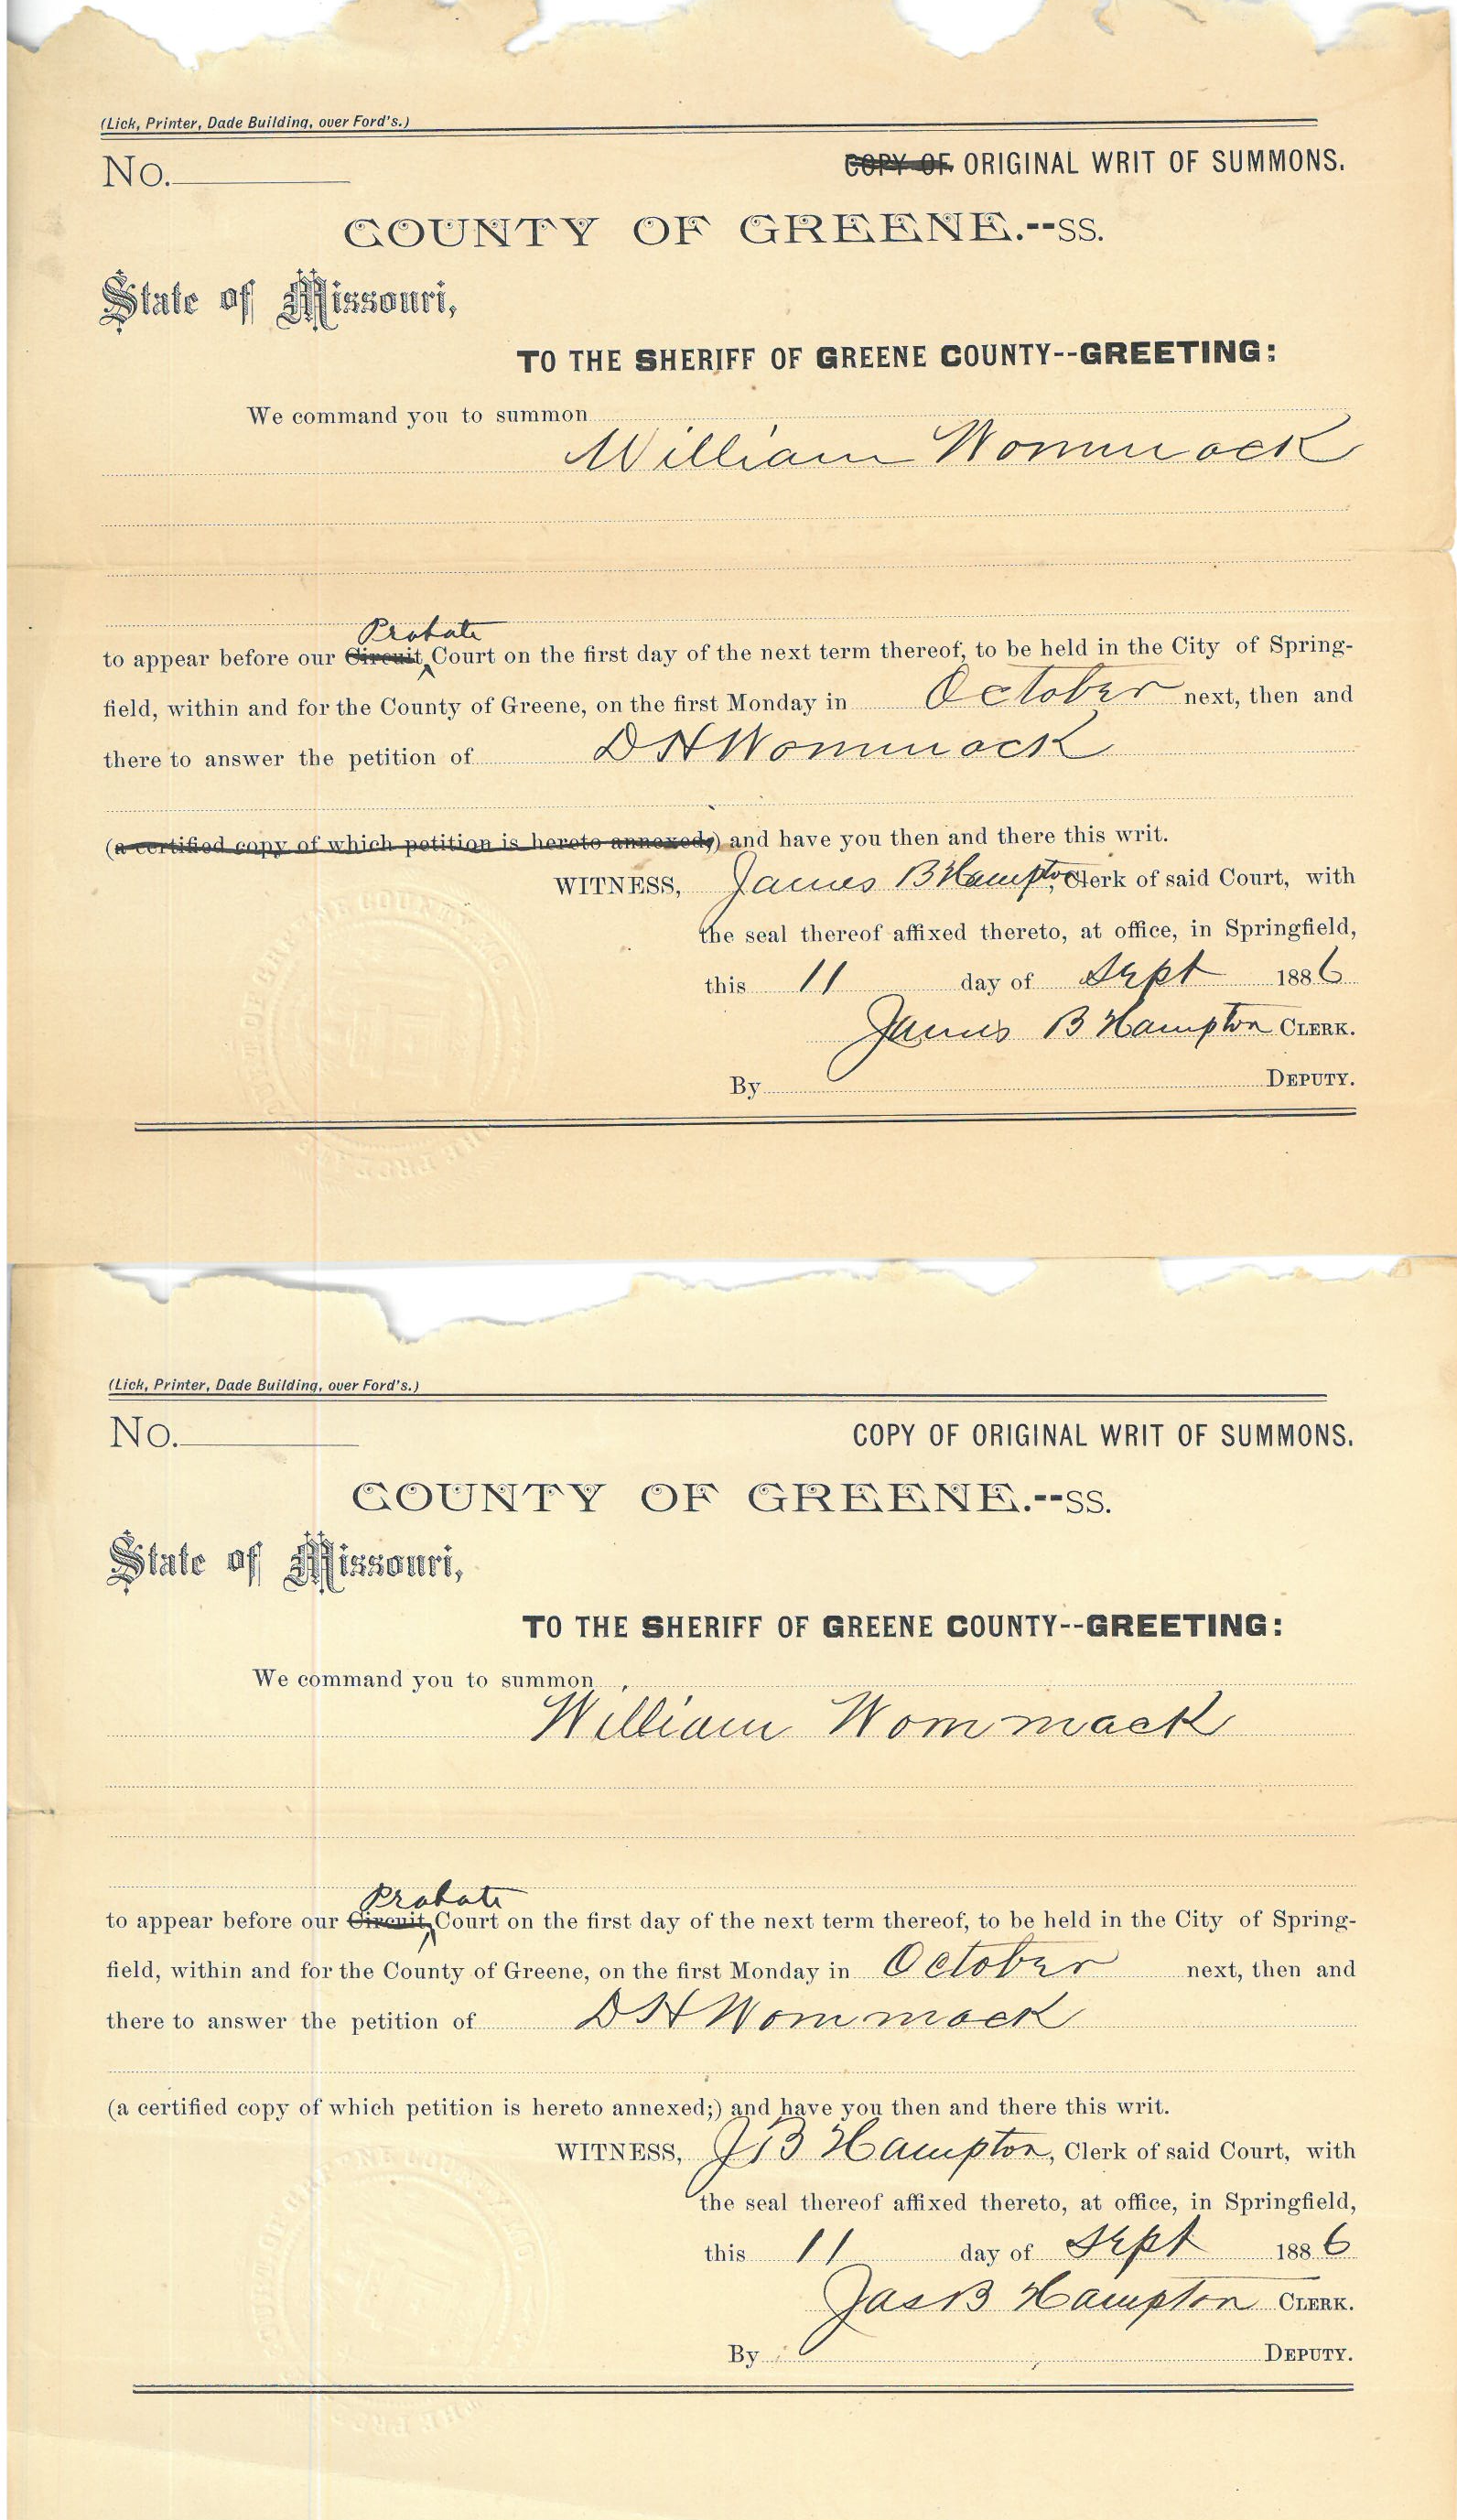 (Lick, Printer, Dade Building, over Ford's.)
No.
COPY OF ORIGINAL WRIT OF SUMMONS.
COUNTY OF GREENE.--SS.
State of Missouri,
TO THE SHERIFF OF GREENE COUNTY--GREETING:
We command you to summon
William Wommack
Probate
to appear before our Circuit Court on the first day of the next term thereof, to be held in the City of Spring-
field, within and for the County of Greene, on the first Monday in October next, then and
there to answer the petition of D H Wommack
(a certified copy of which petition is hereto annexed;) and have you then and there this writ.
WITNESS, James B Hampton, Clerk of said Court, with
the seal thereof affixed thereto, at office, in Springfield,
this 11 day of Sept 1886
James B Hampton CLERK.
By DEPUTY.
(Lick, Printer, Dade Building, over Ford's.)
No.
COPY OF ORIGINAL WRIT OF SUMMONS.
COUNTY OF GREENE.--SS.
State of Missouri,
TO THE SHERIFF OF GREENE COUNTY--GREETING:
We command you to summon
William Wommack
Probate
to appear before our Circuit Court on the first day of the next term thereof, to be held in the City of Spring-
field, within and for the County of Greene, on the first Monday in October next, then and
there to answer the petition of D H Wommack
(a certified copy of which petition is hereto annexed;) and have you then and there this writ.
WITNESS, J B Hampton, Clerk of said Court, with
the seal thereof affixed thereto, at office, in Springfield,
this 11 day of Sept 1886
Jas B Hampton CLERK.
By DEPUTY.